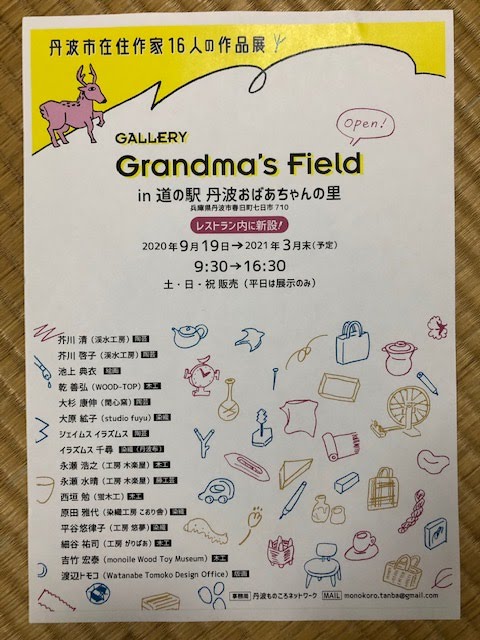 丹波市在住作家16人の作品展
GALLERY
Open!
Grandma's Field
in 道の駅 丹波おばあちゃんの里
兵庫県丹波市春日町七日市710
レストラン内に新設!
2020年9月19日→2021年3月末(予定)
9:30→16:30
土・日・祝 販売(平日は展示のみ)
芥川 清(渓水工房)陶芸
芥川 啓子(渓水工房)陶芸
池上 典衣 絵画
乾 善弘(WOOD-TOP)木工
大杉 康伸(閑心窯)陶芸
大原 絋子(studio fuyu)染織
ジェイムス イラズムス 陶芸
イラズムス 千尋 染織(丹波布)
永瀬 浩之(工房 木楽屋)木工
永瀬 水晴(工房 木楽屋)籐工芸
西垣 勉(蛍木工)木工
原田 雅代(染織工房 こおり舎)染織
平谷悠律子(工房 悠夢)染織
細谷 祐司(工房 がりばあ)木工
吉竹 宏泰(monoile Wood Toy Museum)木工
渡辺トモコ(Watanabe Tomoko Design Office)版画
事務局 丹波ものころネットワーク MAIL monokoro.tanba@gmail.com